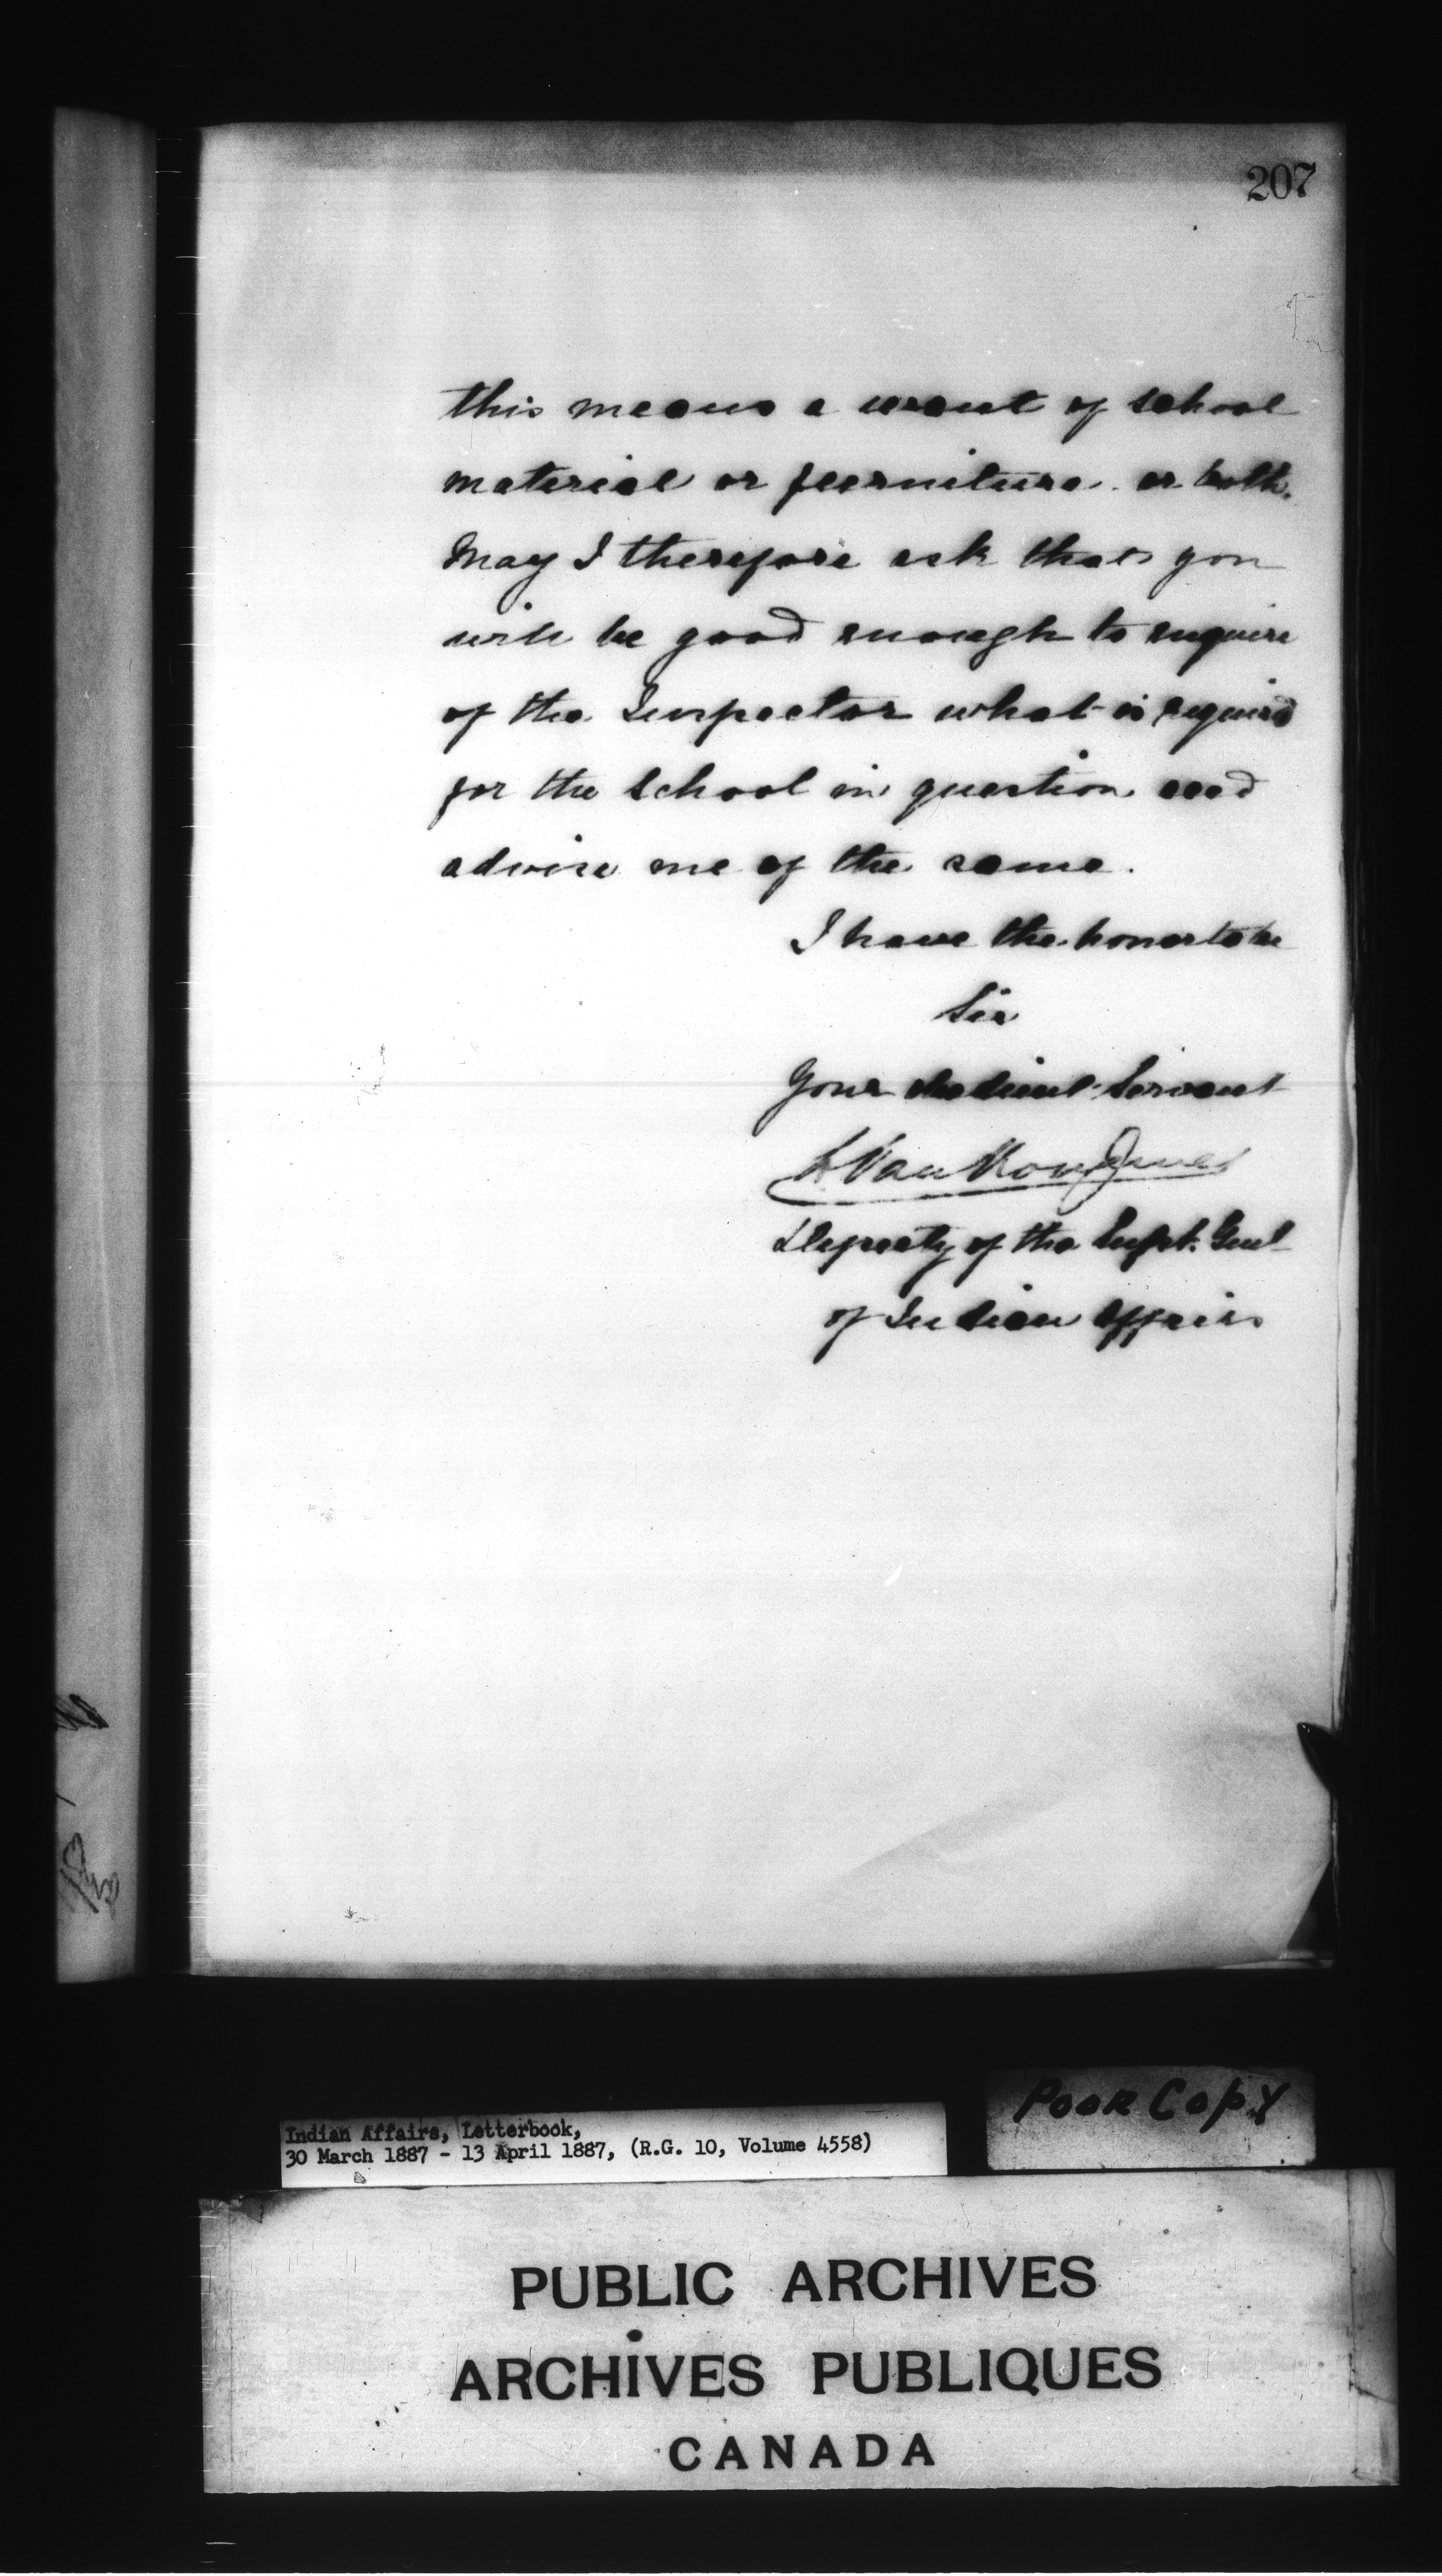 207
this means a want of school
material or furniture or both.
May I therefore ask that you
will be good enough to enquire
of the Inspector what is required
for the School in question and
advise me of the same.
I have the honor to be
Sir
Your obedient Servant
L VanKoughnet
Deputy of the Supt. Genl
of Indian Affairs
POOR COPY
Indian Affairs, Letterbook,
30 March 1887 - 13 April 1887, (R.G. 10, Volume 4558)
PUBLIC ARCHIVES
ARCHIVES PUBLIQUES
CANADA